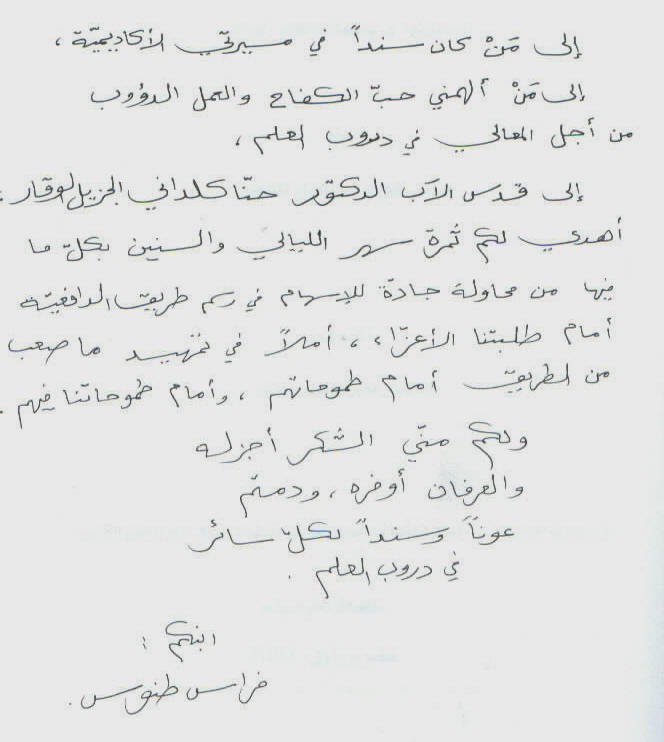 إلى مَنْ كان سنداً في مسيرتي الأكاديميّة ،
إلى مَنْ ألهمني حبّ الكفاح والعمل الدؤوب
من أجل المعالي في دروب العلم ،
إلى قدس الأب الدكتور حنّا كلداني الجزيل الوقار :
أهدي لكم ثمرة سهر الليالي والسنين بكلّ ما
فيها من محاولة جادّة للإسهام في رسم طريق الدافعيّة
أمام طلبتنا الأعزّاء ، أملاً في تمهيد ما صعب
من الطريق أمام طموحاتهم ، وأمام طموحاتنا فيهم .
ولكم منّي الشكر أجزله
والعرفان أوفره ، ودمتم
عوناً وسنداً لكلّ سائر
في دروب العلم .
ابنكم :
فراس طنوس .